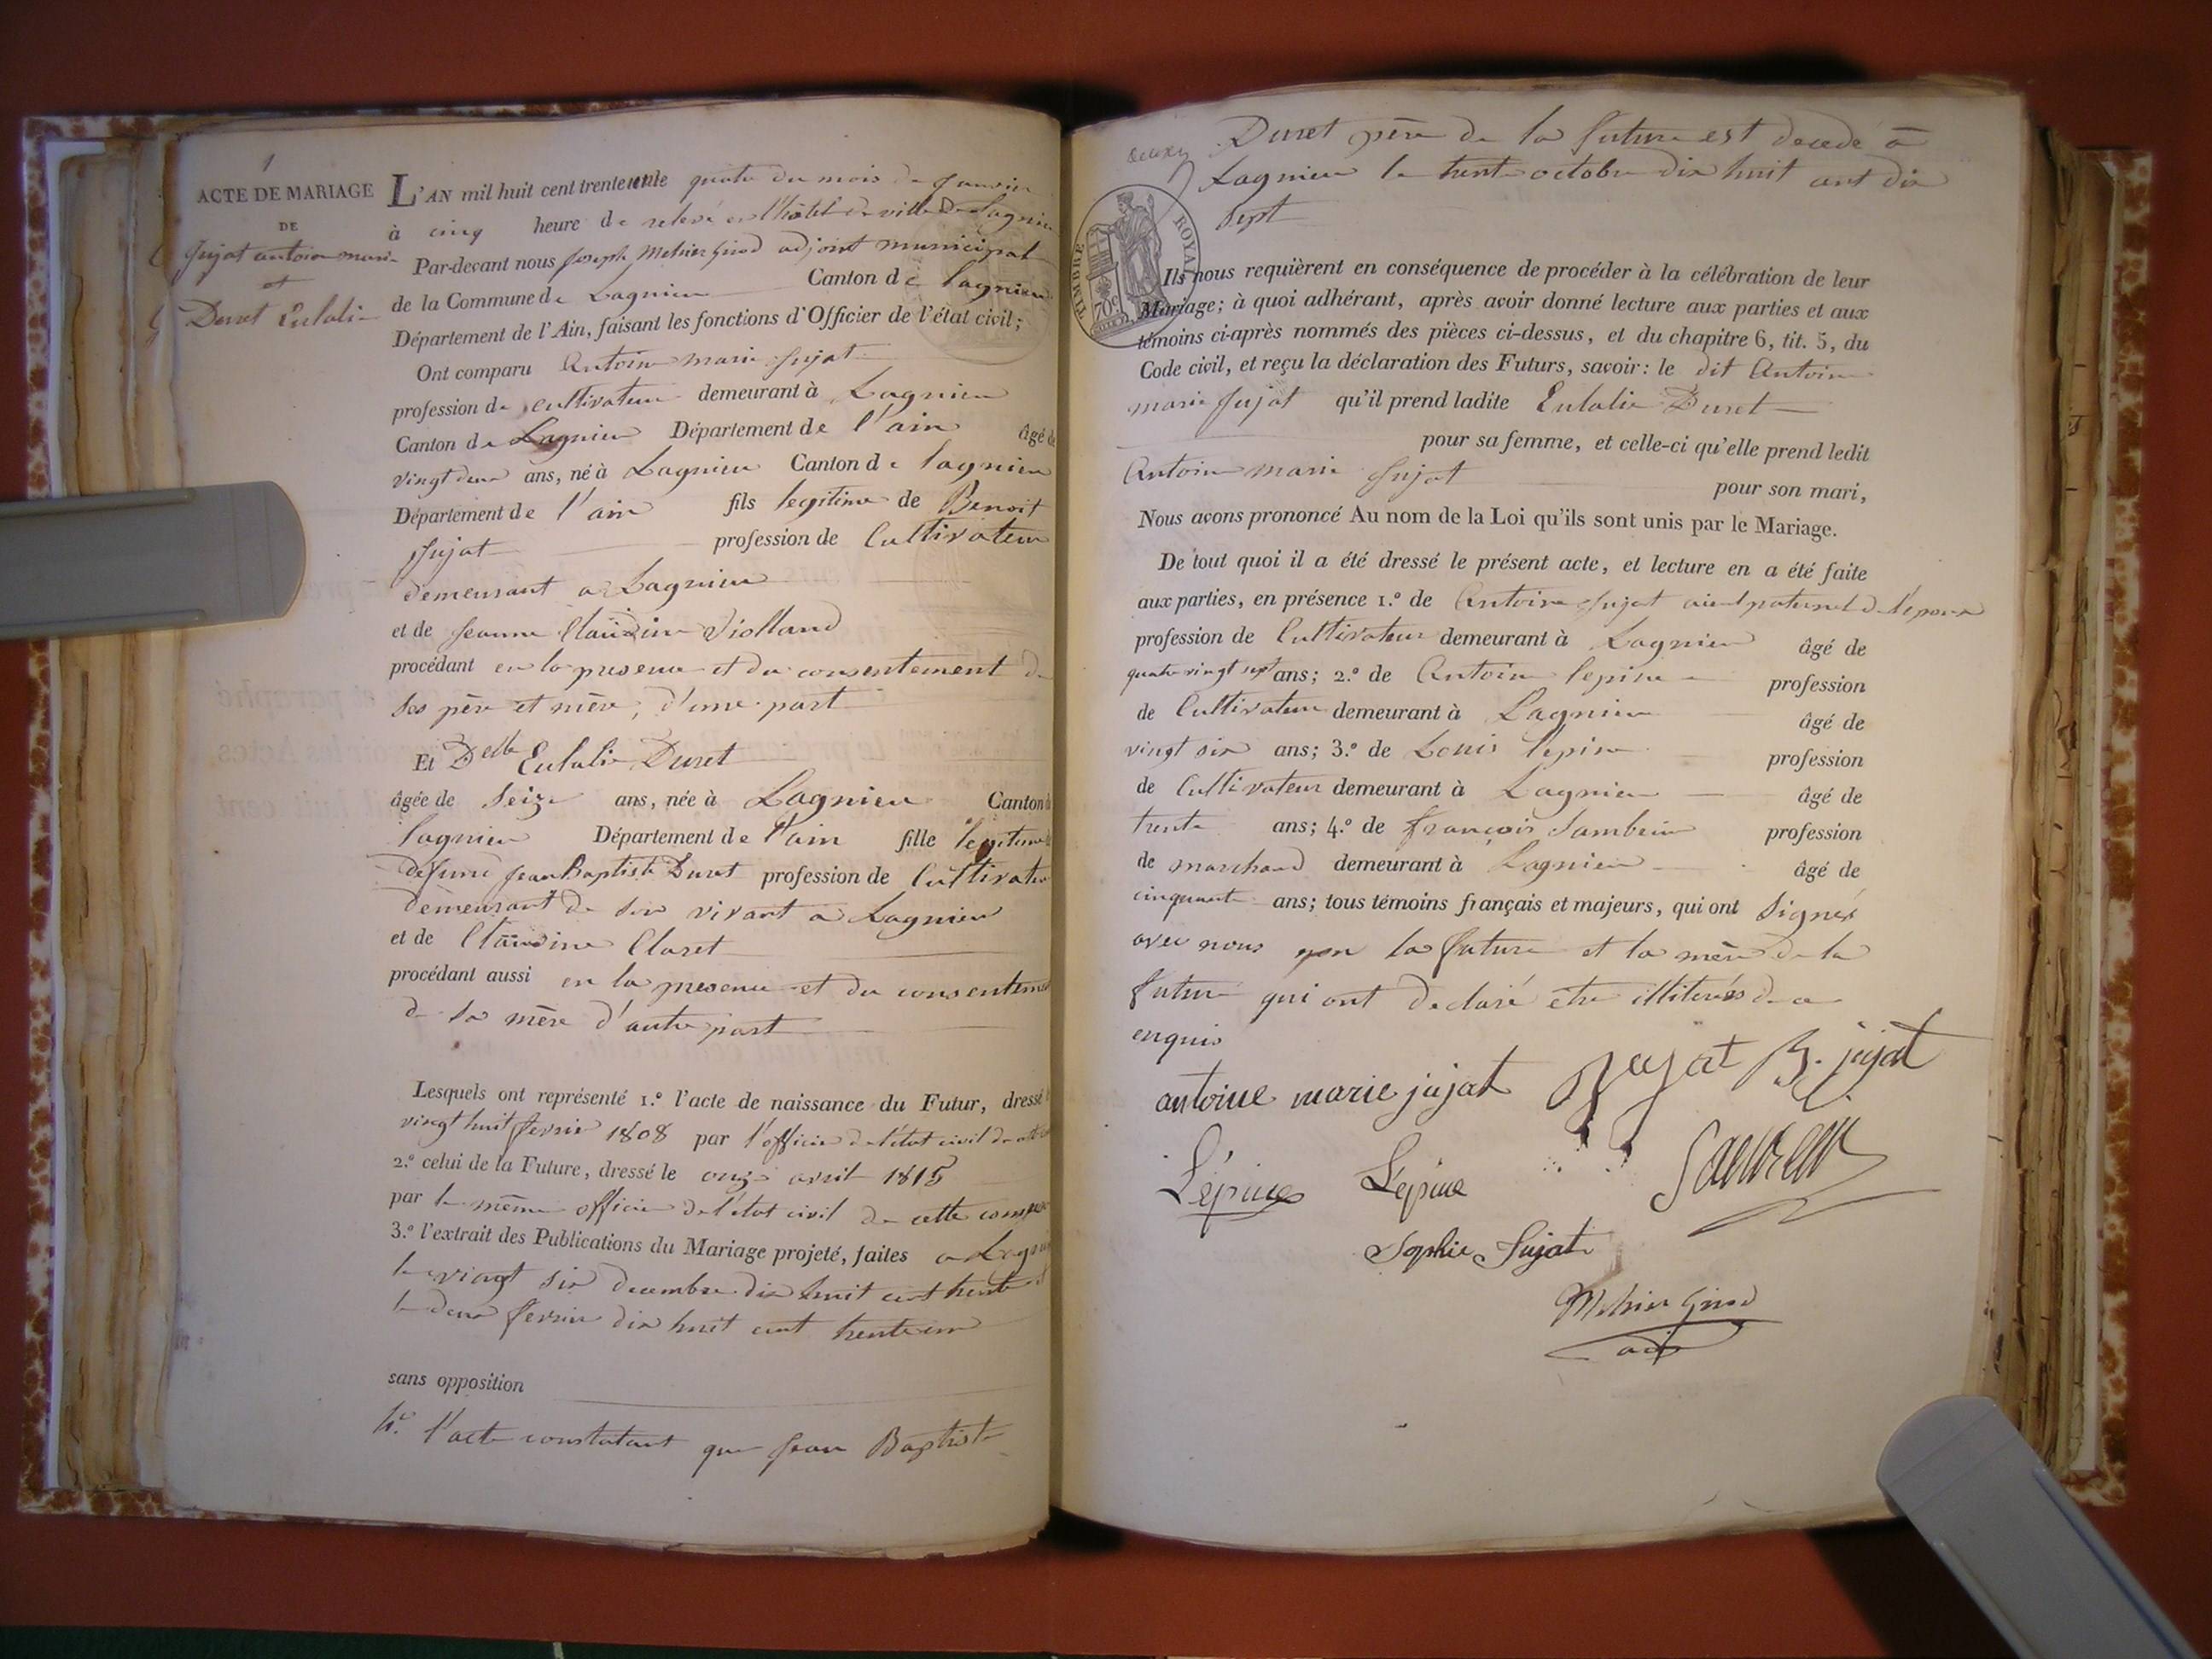 1
ACTE DE MARIAGE
DE
Jujat antoine marie
et
Duret Eulalie
L'AN mil huit cent trente et un le quatre du mois de Janvier
à cinq heure de relevé en l'hôtel de ville de Lagnieu
Par-devant nous Joseph Mehier Girod adjoint municipal
de la Commune de Lagnieu Canton de lagnieu
Département de l'Ain, faisant les fonctions d'Officier de l'état civil;
Ont comparu Antoine marie Jujat
profession de cultivateur demeurant à Lagnieu
Canton de Lagnieu Département de l'ain âgé de
vingt deux ans, né à Lagnieu Canton de lagnieu
Département de l'ain fils legitime de Benoit
Jujat profession de Cultivateur
demeurant a Lagnieu
et de Jeanne Claudine Violland
procédant en la presence et du consentement de
ses père et mère, d'une part
Et Delle Eulalie Duret
âgée de Seize ans, née à Lagnieu Canton de
lagnieu Département de l'ain fille legitime de
defunt Jean Baptiste Duret profession de Cultivateur
demeurant de son vivant a Lagnieu
et de Claudine Claret
procédant aussi en la presence et du consentement
de sa mère d'autre part
Lesquels ont représenté 1.° l'acte de naissance du Futur, dressé le
vingt huit fevrier 1808 par l'officier de l'état civil de cette
2.° celui de la Future, dressé le onze avril 1815
par le même officier de l'état civil de cette commune
3.° l'extrait des Publications du Mariage projeté, faites a Lagnieu
le vingt six decembre dix huit cent trente et
le deux fevrier dix huit cent trente un
sans opposition
4.° l'acte constatant que Jean Baptiste
deux
Duret père de la future est decedé à
Lagnieu le trente octobre dix huit cent dix
sept
TIMBRE ROYAL
70c
Ils nous requièrent en conséquence de procéder à la célébration de leur
Mariage; à quoi adhérant, après avoir donné lecture aux parties et aux
témoins ci-après nommés des pièces ci-dessus, et du chapitre 6, tit. 5, du
Code civil, et reçu la déclaration des Futurs, savoir: le dit Antoine
marie Jujat qu'il prend ladite Eulalie Duret
pour sa femme, et celle-ci qu'elle prend ledit
Antoine marie Jujat pour son mari,
Nous avons prononcé Au nom de la Loi qu'ils sont unis par le Mariage.
De tout quoi il a été dressé le présent acte, et lecture en a été faite
aux parties, en présence 1.° de Antoine Jujat aieul paternel de l'epoux
profession de Cultivateur demeurant à Lagnieu âgé de
quatre vingt sept ans; 2.° de Antoine lepine profession
de Cultivateur demeurant à Lagnieu âgé de
vingt six ans; 3.° de Louis lepine profession
de Cultivateur demeurant à Lagnieu âgé de
trente ans; 4.° de françois Sambein profession
de marchand demeurant à Lagnieu âgé de
cinquante ans; tous témoins français et majeurs, qui ont signés
avec nous non la future et la mère de la
future qui ont declaré etre illiterées de ce
enquis
antoine marie jujat Jujat B. jujat
Lépine Lépine
Sophie Jujat
Mehier Girod
adj